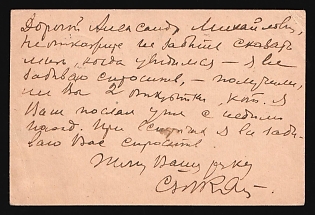 Дорогой Александр Михайлович,
не откажите не забыть сказать
мне, когда увидимся – я все
забываю спросить, – получили
ли Вы 2 открытки, кот. я
Вам послал уже с неделю
назад. При встречах я все забы-
ваю Вас спросить.
Жму Вашу руку